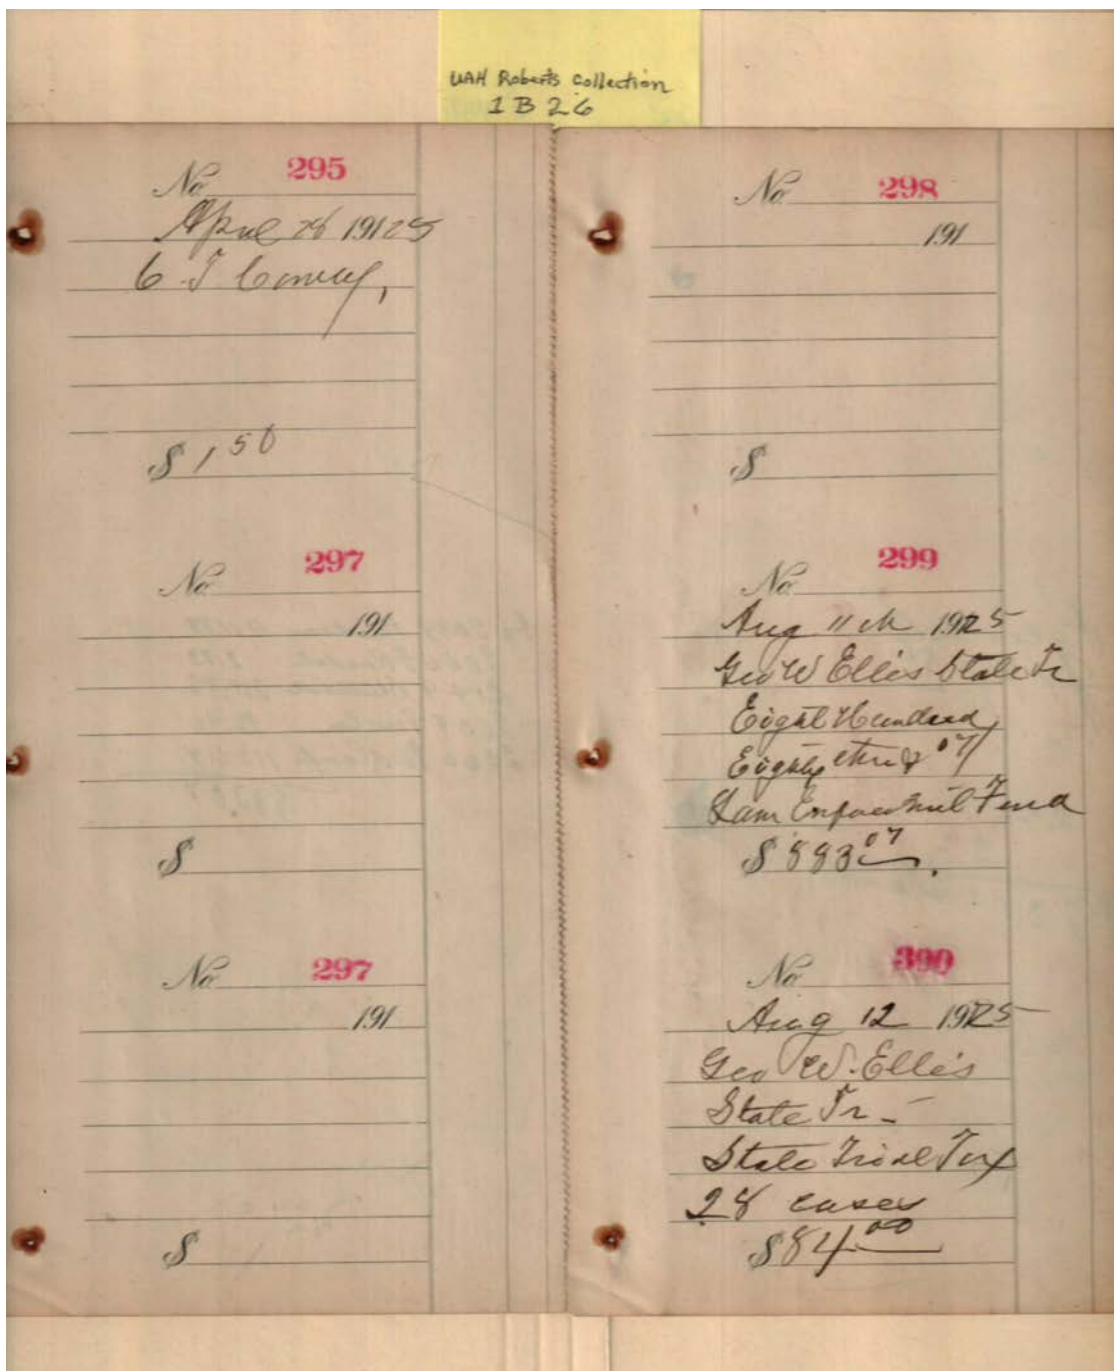 UAH Roberts Collection
1 B 26
No 295
April 28 19125
C. T
$ 1 50
No 297
191
$
No 297
191
$
No 298
191
$
No 299
Aug 11th 19125
Geo W Ellis State Tr
Eight Hundred
Eighty three & 07/
Law Enforcement Fund
$ 883 07
No 300
Aug 12 19125
Geo W. Ellis
State Tr -
State Trial Tax
28 cases
$ 84 00